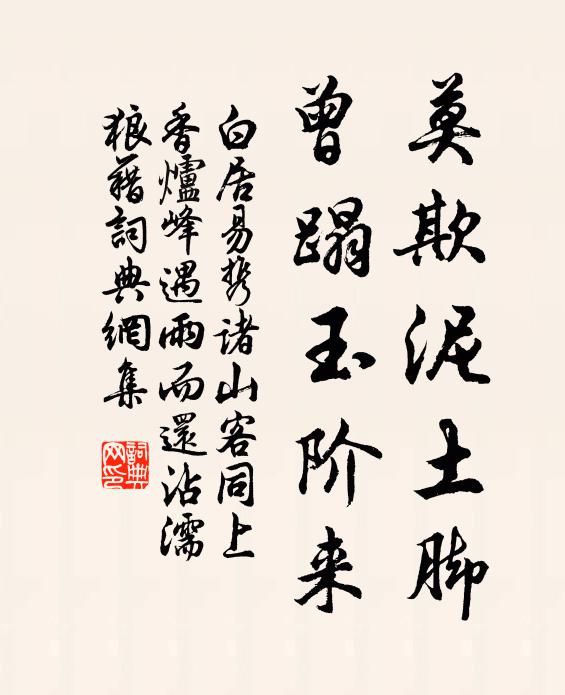 莫欺泥土脚
曾蹋玉阶来
白居易携諸山客同上
香爐峰遇雨而還沾濡
狼藉詞典網集
詞典
网印